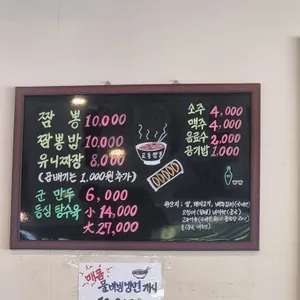 짬뽕 10,000
짬뽕밥 10,000
유니짜장 8,000
(곱배기는 1,000원 추가)
군만두 6,000
등심탕수육 小 14,000
大 27,000
소주 4,000
맥주 4,000
음료수 2,000
공기밥 1,000
원산지: 쌀,
매콤
물비빔냉면 개시